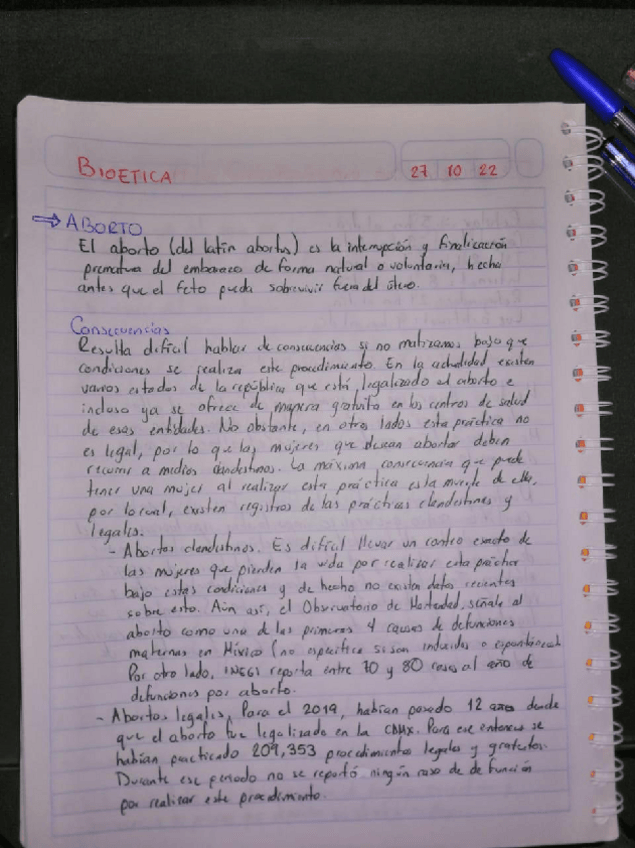 BIOETICA
27 10 22
⇒ ABORTO
El aborto (del latín abortus) es la interrupción y finalización
prematura del embarazo de forma natural o voluntaria, hecha
antes que el feto pueda sobrevivir fuera del útero.
Consecuencias
Resulta difícil hablar de consecuencias si no matizamos bajo que
condiciones se realiza este procedimiento. En la actualidad existen
varios estados de la república que está legalizado el aborto e
incluso ya se ofrece de manera gratuita en los centros de salud
de esas entidades. No obstante, en otros lados esta práctica no
es legal, por lo que las mujeres que desean abortar deben
recurrir a medios clandestinos. La máxima consecuencia que puede
tener una mujer al realizar esta práctica es la muerte de ella,
por lo cual, existen registros de las prácticas clandestinas y
legales.
- Abortos clandestinos. Es difícil llevar un conteo exacto de
las mujeres que pierden la vida por realizar esta práctica
bajo estas condiciones y de hecho no existen datos recientes
sobre esto. Aún así, el Observatorio de señala al
aborto como una de las primeras 4 causas de defunciones
maternas en México (no especifica si son inducidos o espontáneos).
Por otro lado, INEGI reporta entre 70 y 80 casos al año de
defunciones por aborto.
- Abortos legales. Para el 2019, habían pasado 12 años desde
que el aborto fue legalizado en la CDMX. Para ese entonces se
habían practicado 209,353 procedimientos legales y gratuitos.
Durante ese periodo no se reportó ningún caso de defunción
por realizar este procedimiento.